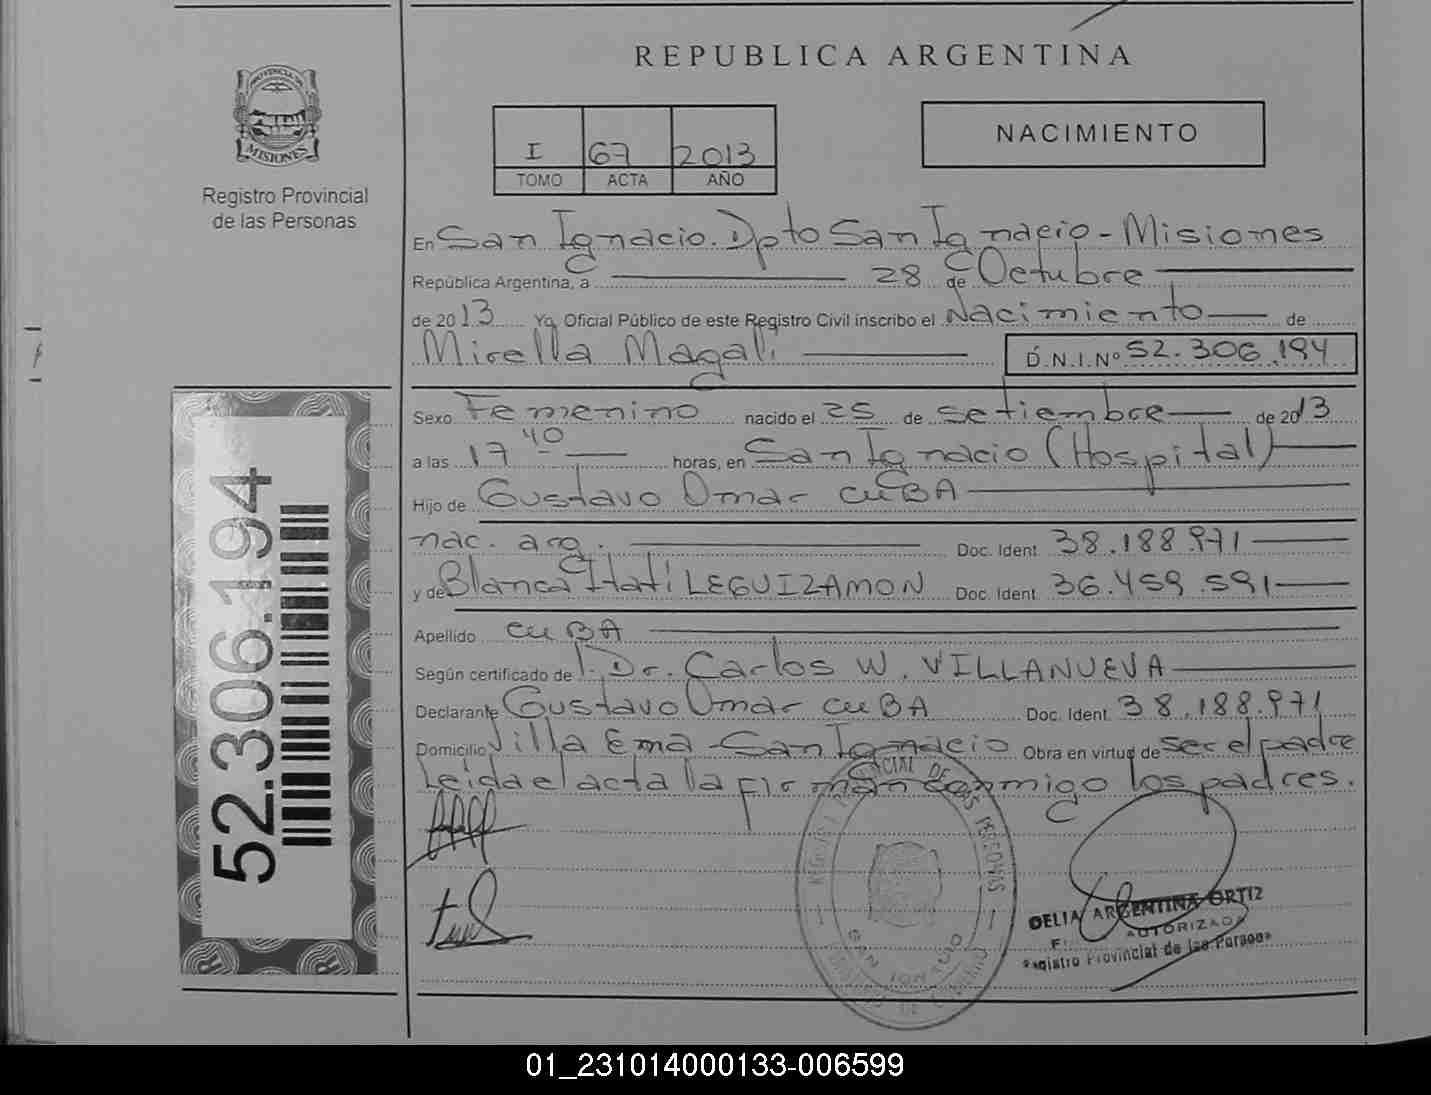 REPUBLICA ARGENTINA
MISIONES
Registro Provincial
de las Personas
I 67 2013
TOMO ACTA AÑO
NACIMIENTO
En San Ignacio. Dpto San Ignacio - Misiones
República Argentina, a 28 de Octubre
de 2013 Yo, Oficial Público de este Registro Civil inscribo el Nacimiento de
Mirella Magali D.N.I. Nº 52.306.194
Sexo Femenino nacido el 25 de setiembre de 2013
a las 17 40 horas, en San Ignacio (Hospital)
Hijo de Gustavo Omar CUBA
nac. arg. Doc. Ident. 38.188.971
y de Blanca Itati LEGUIZAMON Doc. Ident. 36.459.591
Apellido CUBA
Según certificado de Dr. Carlos W. VILLANUEVA
Declarante Gustavo Omar CUBA Doc. Ident. 38.188.971
Domicilio Villa Ema - San Ignacio Obra en virtud de ser el padre
Leida el acta la firman conmigo los padres.
52.306.194
DELIA ARGENTINA ORTIZ
AUTORIZADA
Registro Provincial de las Personas
SAN IGNACIO
01_231014000133-006599